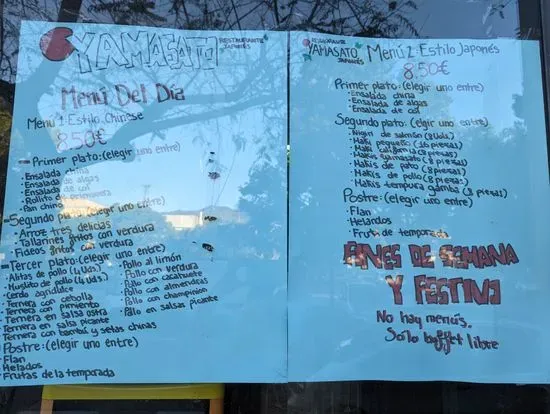 YAMASATO RESTAURANTE JAPONÉS
Menú Del Día
Menú 1 Estilo Chinese
8.50€
- Primer plato: (elegir uno entre)
· Ensalada china
· Ensalada de algas
· Ensalada de col
· Rollito de
· Pan chino
- Segundo plato: (elegir uno entre)
· Arroz tres delicias
· Tallarines fritos con verdura
· Fideos fritos con verdura
- Tercer plato: (elegir uno entre)
· Alitas de pollo (4 uds.)
· Muslito de pollo (4 uds.)
· Cerdo agridulce
· Ternera con cebolla
· Ternera con pimiento
· Ternera en salsa ostra
· Ternera en salsa picante
· Ternera con bambú y setas chinas
· Pollo al limón
· Pollo con verdura
· Pollo con cacahuete
· Pollo con almendras
· Pollo con champiñon
· Pollo en salsas picante
Postre: (elegir uno entre)
· Flan
· Helados
· Frutas de la temporada
RESTAURANTE
YAMASATO
JAPONÉS
Menú 2 Estilo Japonés
8.50€
Primer plato: (elegir uno entre)
· Ensalada china
· Ensalada de algas
· Ensalada de col
Segundo plato: (elegir uno entre)
· Nigiri de salmón (8 uds.)
· Maki pequeño (16 piezas)
· Maki california (8 piezas)
· Makis yamasato (8 piezas)
· Makis de pato (8 piezas)
· Makis de pollo (8 piezas)
· Makis tempura gamba (8 piezas)
Postre: (elegir uno entre)
· Flan
· Helados
· Fruta de temporada
FINES DE SEMANA
Y FESTIVO
No hay menús.
Solo buffet libre